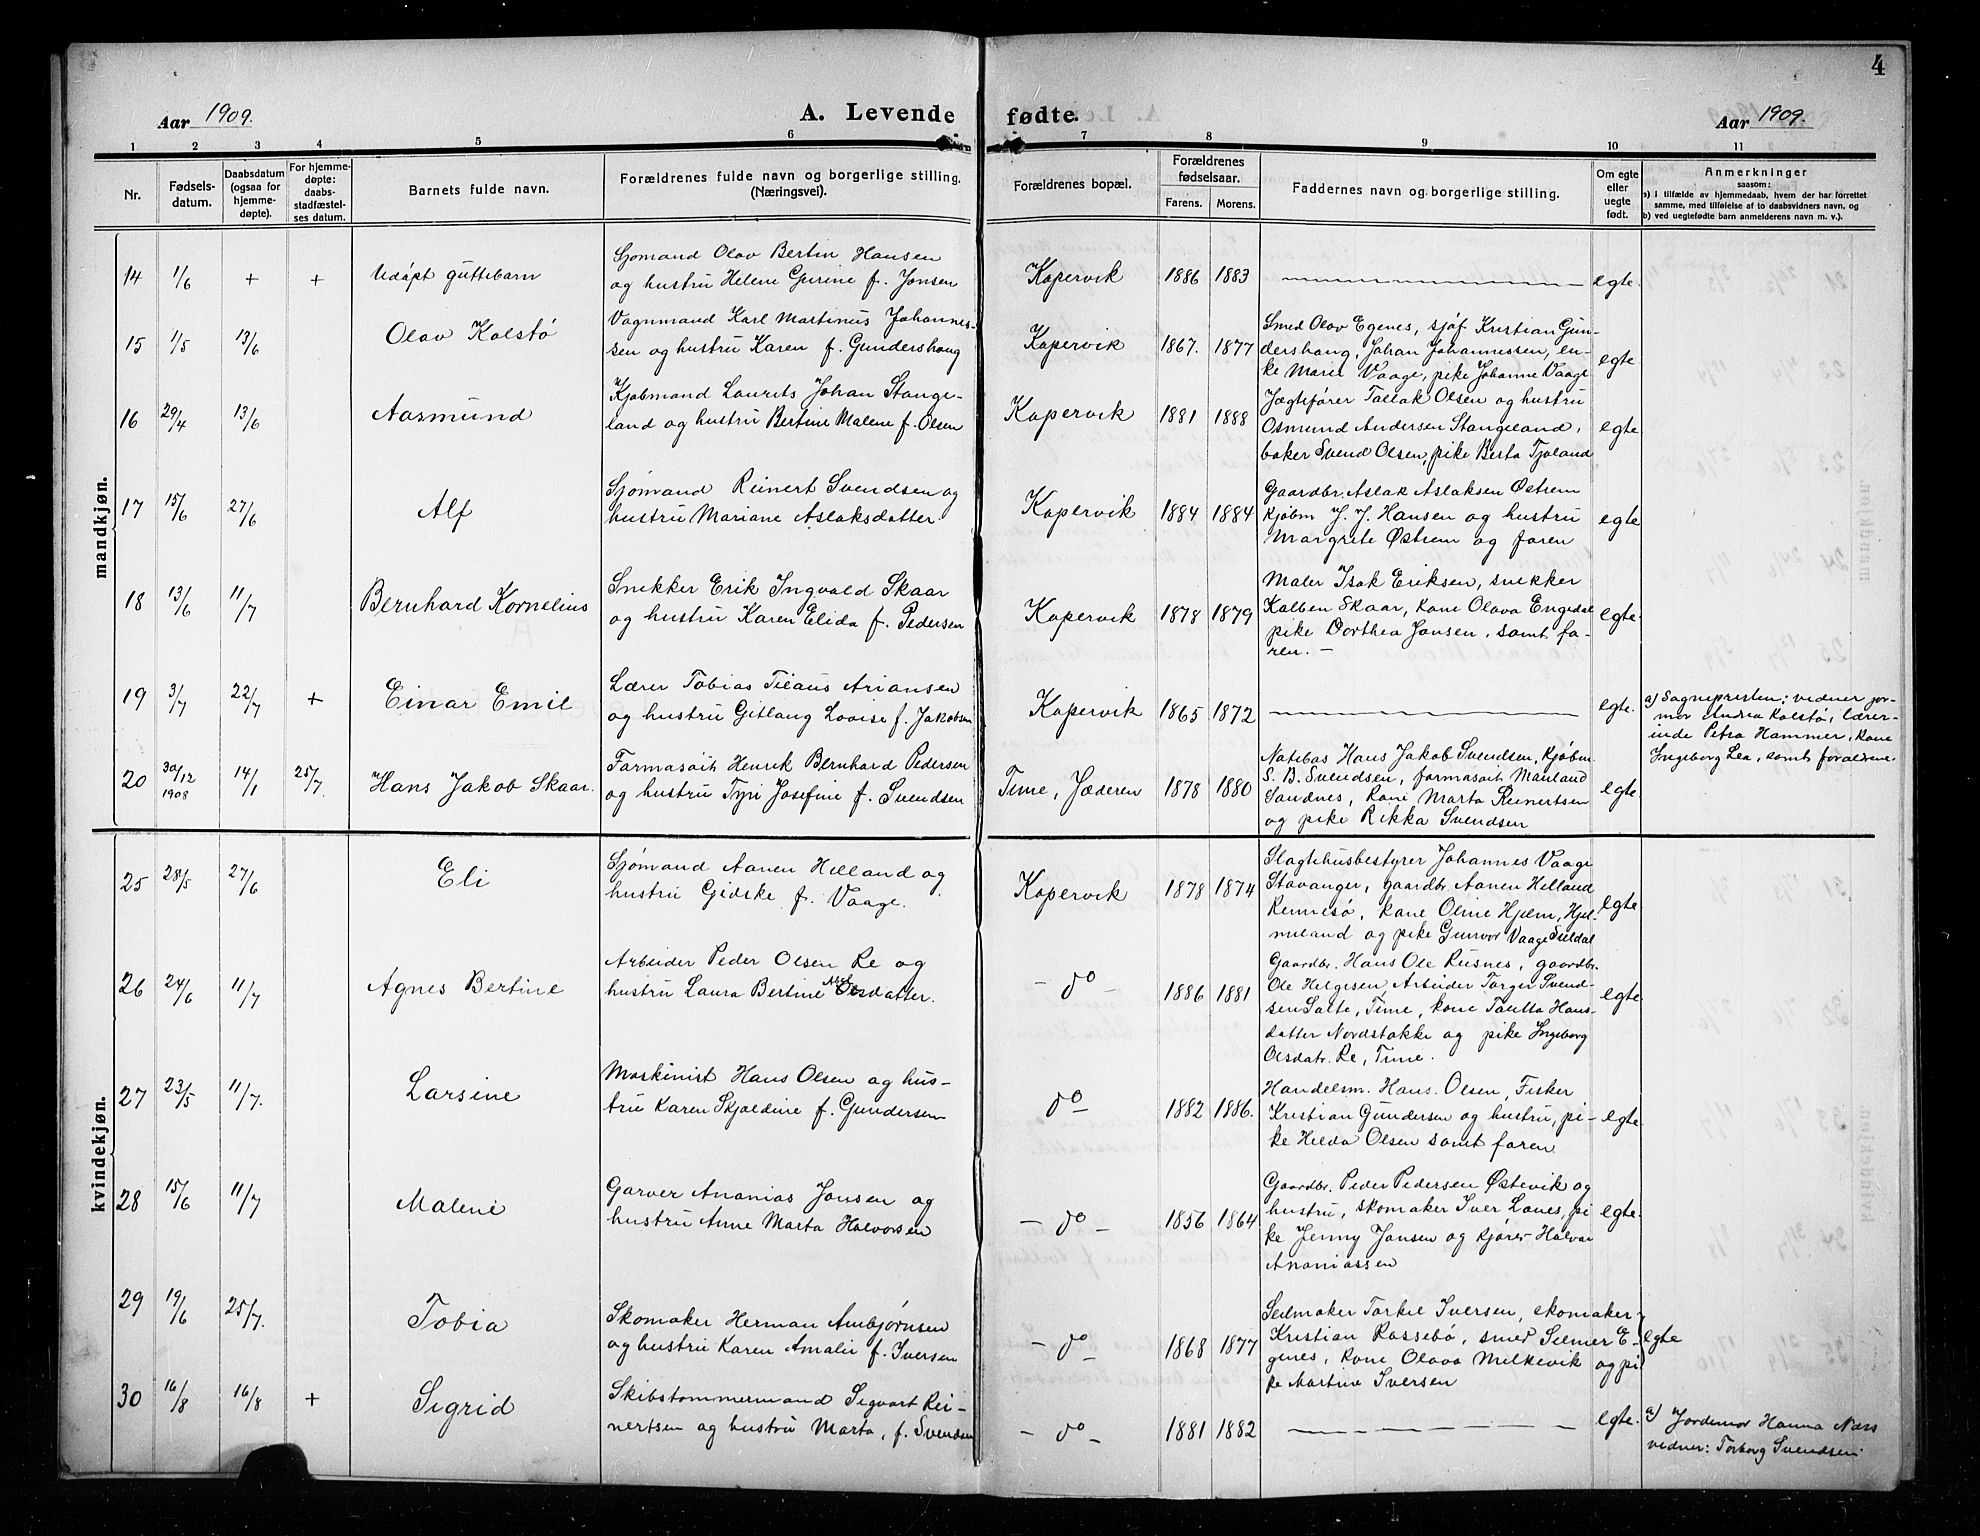 4
Aar 1909.
A. Levende
fødte.
Aar 1909.
1 2 3 4 5 6 7 8 9 10 11
Nr.
Fødsels-
datum.
Daabsdatum
(ogsaa for
hjemme-
døpte).
For hjemme-
døpte:
daabs-
stadfæstel-
ses datum.
Barnets fulde navn.
Forældrenes fulde navn og borgerlige stilling.
(Næringsvei).
Forældrenes bopæl.
Forældrenes
fødselsaar.
Farens. Morens.
Faddernes navn og borgerlige stilling.
Om egte
eller
uegte
født.
Anmerkninger
saasom:
a) i tilfælde av hjemmedaab, hvem der har forrettet
samme, med tilføielse af to daabsvidners navn, og
b) ved uegtefødte barn anmelderens navn m. v.).
mandkjøn.
14 1/6 + + Udøpt guttebarn
Sjømand Olav Bertin Hansen
og hustru Helene Gurine f. Jonsen
Kopervik 1886 1883 egte.
15 1/5 13/6 Olav Kolstø
Vognmand Karl Martinus Johannes-
sen og hustru Karen f. Gundershaug
Kopervik 1867. 1877
Smed Olav Egenes, sjøf. Kristian Gun-
dershaug, Johan Johannessen, en-
ke Marie Vaage, pike Johanne Vaage
egte
16 29/4 13/6 Aasmund
Kjøbmand Laurits Johan Stange-
land og hustru Bertine Malene f. Olsen
Kopervik 1881 1888
Jægtefører Tallak Olsen og hustru
Osmund Andersen Stangeland,
baker Svend Olsen, pike Berta Tjøland
egte
17 15/6 27/6 Alf
Sjømand Reinert Svendsen og
hustru Mariane Aslaksdatter.
Kopervik 1884 1884
Gaardbr. Aslak Aslaksen Østrem
kjøbm J. J. Hansen og hustru
Margrete Østrem og faren
egte
18 13/6 11/7 Bernhard Kornelius
Snekker Erik Ingvald Skaar
og hustru Karen Elida f. Pedersen
Kopervik 1878 1879
Maler Isak Eriksen, snekker
Kalben Skaar, kone Olava Engedal
pike Dorthea Jansen, samt fa-
ren. —
egte.
19 3/7 22/7 + Einar Emil
Lærer Tobias Tilaus Ariansen
og hustru Gitlaug Lovise f. Jakobsen
Kopervik 1865 1872 egte.
a) Sognepresten; vidner jor-
mor Andrea Kolstø, lærer-
inde Petra Hammer, kone
Ingeborg Lea, samt forældrene.
20 30/12 1908 14/1 25/7 Hans Jakob Skaar.
Farmasøit Henrik Bernhard Pedersen
og hustru Tyri Josefine f. Svendsen
Time, Jæderen 1878 1880
Notebas Hans Jakob Svendsen, kjøbm
S. B. Svendsen, farmasøit Mauland
Sandnes, kone Marta Reinertsen
og pike Rikka Svendsen
egte
kvindekjøn.
25 28/5 27/6 Eli
Sjømand Aanen Helland og
hustru Gidske f. Vaage.
Kopervik 1878 1874
Slagtehusbestyrer Johannes Vaage
Stavanger, gaardbr. Aanen Helland
Rennesø, kone Oline Hjelm, Hjel-
meland og pike Gunvor Vaage Suldal
egte
26 24/6 11/7 Agnes Bertine
Arbeider Peder Olsen Re og
hustru Laura Bertine Olsdatter.
— do — 1886 1881
Gaardbr. Hans Ole Rusnes, gaardbr.
Ole Helgesen, Arbeider Torger Svend-
sen Salte, Time, kone Taletta Hans-
datter Nordstokke og pike Ingeborg
Olsdatr. Re, Time.
egte
27 23/5 11/7. Larsine
Maskinist Hans Olsen og hus-
tru Karen Skjoldine f. Gundersen
do — 1882 1886.
Handelsm. Hans. Olsen, Fisker
Kristian Gundersen og hustru, pi-
ke Hilda Olsen samt faren
egte.
28 15/6 11/7 Malene
Garver Ananias Jonsen og
hustru Anne Marta Halvorsen
— do — 1856 1864
Gaardbr. Peder Pedersen Østevik og
hustru, skomaker Iver Lones, pi
ke Jenny Jansen og kjører Halvar
Ananiassen
egte.
29 19/6 25/7. Tobia
Skomaker Herman Ambjørnsen
og hustru Karen Amalie f. Iversen
— do — 1868 1877
Seilmaker Torkel Iversen, skomaker
Kristian Rossebø, smed Selmer E-
genes, kone Olava Melkevik og pi
ke Martine Iversen
egte
30 16/8 16/8 + Sigrid
Skibstømmermand Sigvart Rei-
nertsen og hustru Marta, f. Svendsen
— do — 1881 1882 egte.
a) Jordemor Hanna Næss
vidner: Torborg Svendsen